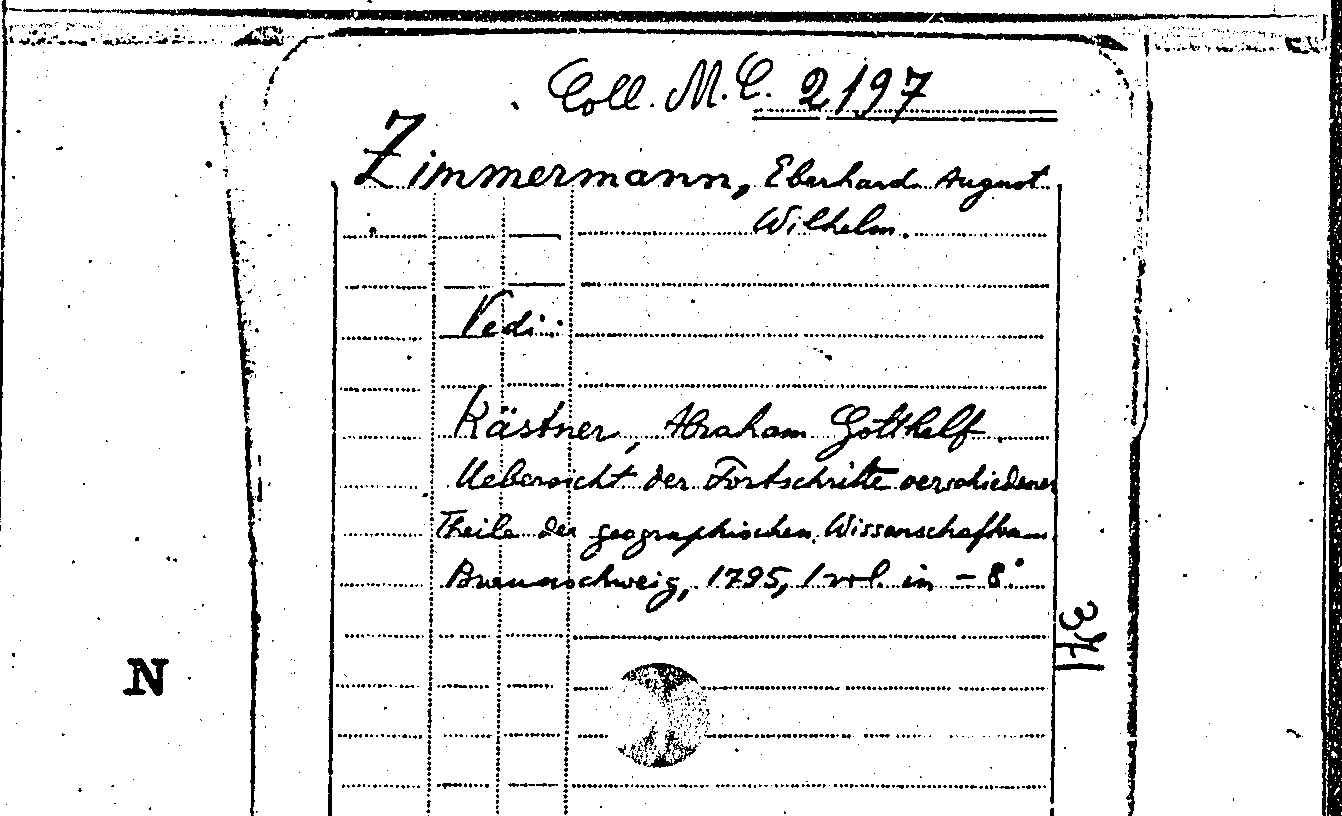 Coll. M. C. 2197
Zimmermann, Eberhard August
Wilhelm.
Vedi:
Kästner, Abraham Gotthelf
Uebersicht der Fortschritte verschiedener
Theile der geographischen Wissenschaften
Braunschweig, 1795, 1 vol. in - 8°
371
N